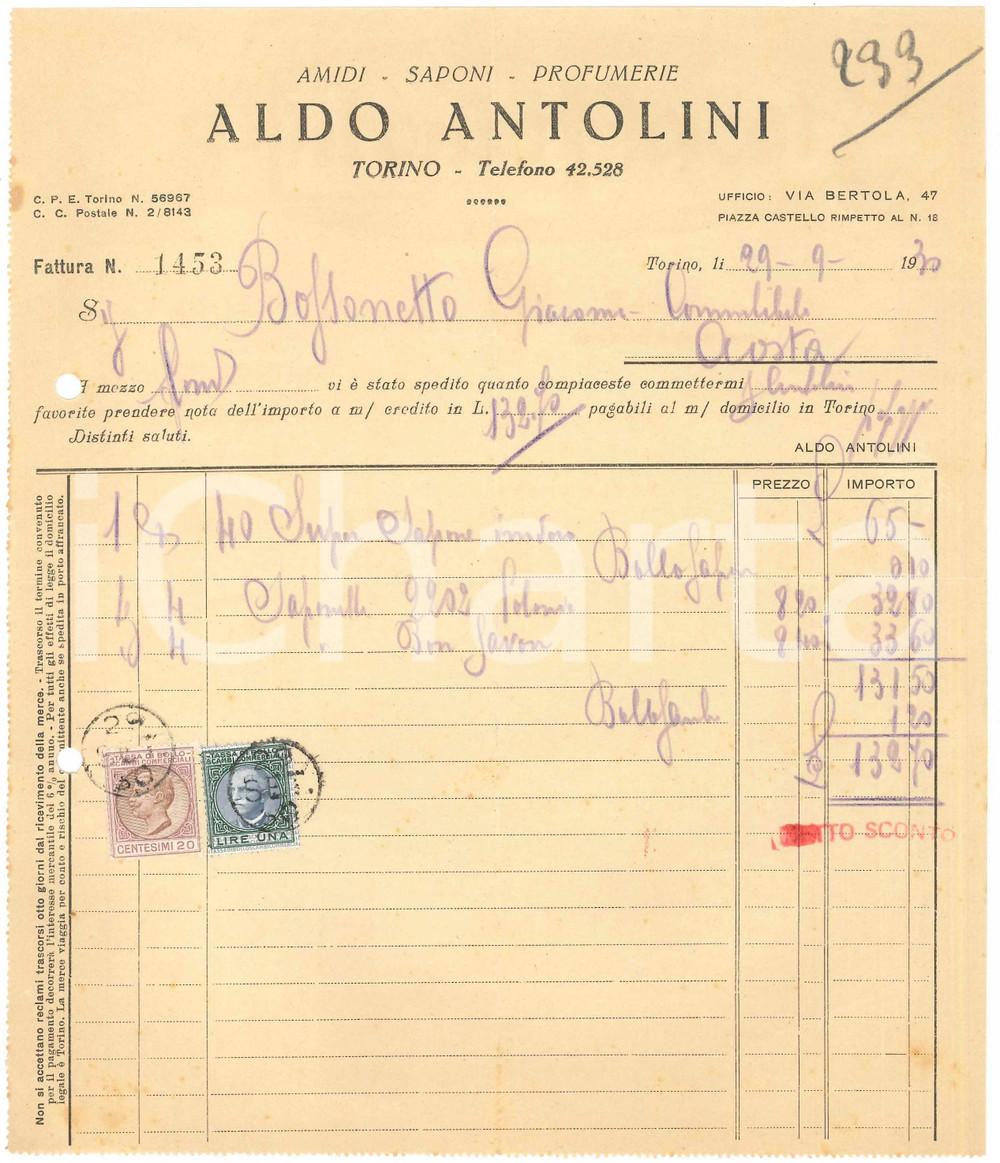 233
AMIDI - SAPONI - PROFUMERIE
ALDO ANTOLINI
TORINO - Telefono 42.528
C. P. E. Torino N. 56967
C. C. Postale N. 2/8143
UFFICIO: VIA BERTOLA, 47
PIAZZA CASTELLO RIMPETTO AL N. 18
Fattura N. 1453
Torino, li 29-9-1930
Sig Bossonetto Giacomo
Aosta
A mezzo vi è stato spedito quanto compiaceste commettermi
favorite prendere nota dell'importo a m/ credito in L. 132.70 pagabili al m/ domicilio in Torino
Distinti saluti.
ALDO ANTOLINI
PREZZO IMPORTO
1 40 Super Sapone L 65-
Bollo 0 10
4 4 Saponette 2202 8 20 32 80
4 Bon Savon 8 40 33 60
131 50
Bollo 1 20
L 132 70
STAMPA DI BOLLO
SCAMBI COMMERCIALI
CENTESIMI 20
SCAMBI COMMERCIALI
LIRE UNA
SCONTO
Non si accettano reclami trascorsi otto giorni dal ricevimento della merce. - Trascorso il termine convenuto
per il pagamento decorrerà l'interesse mercantile del 6% annuo. - Per tutti gli effetti di legge il domicilio
legale è Torino. La merce viaggia per conto e rischio del committente anche se spedita in porto affrancato.
iCharta